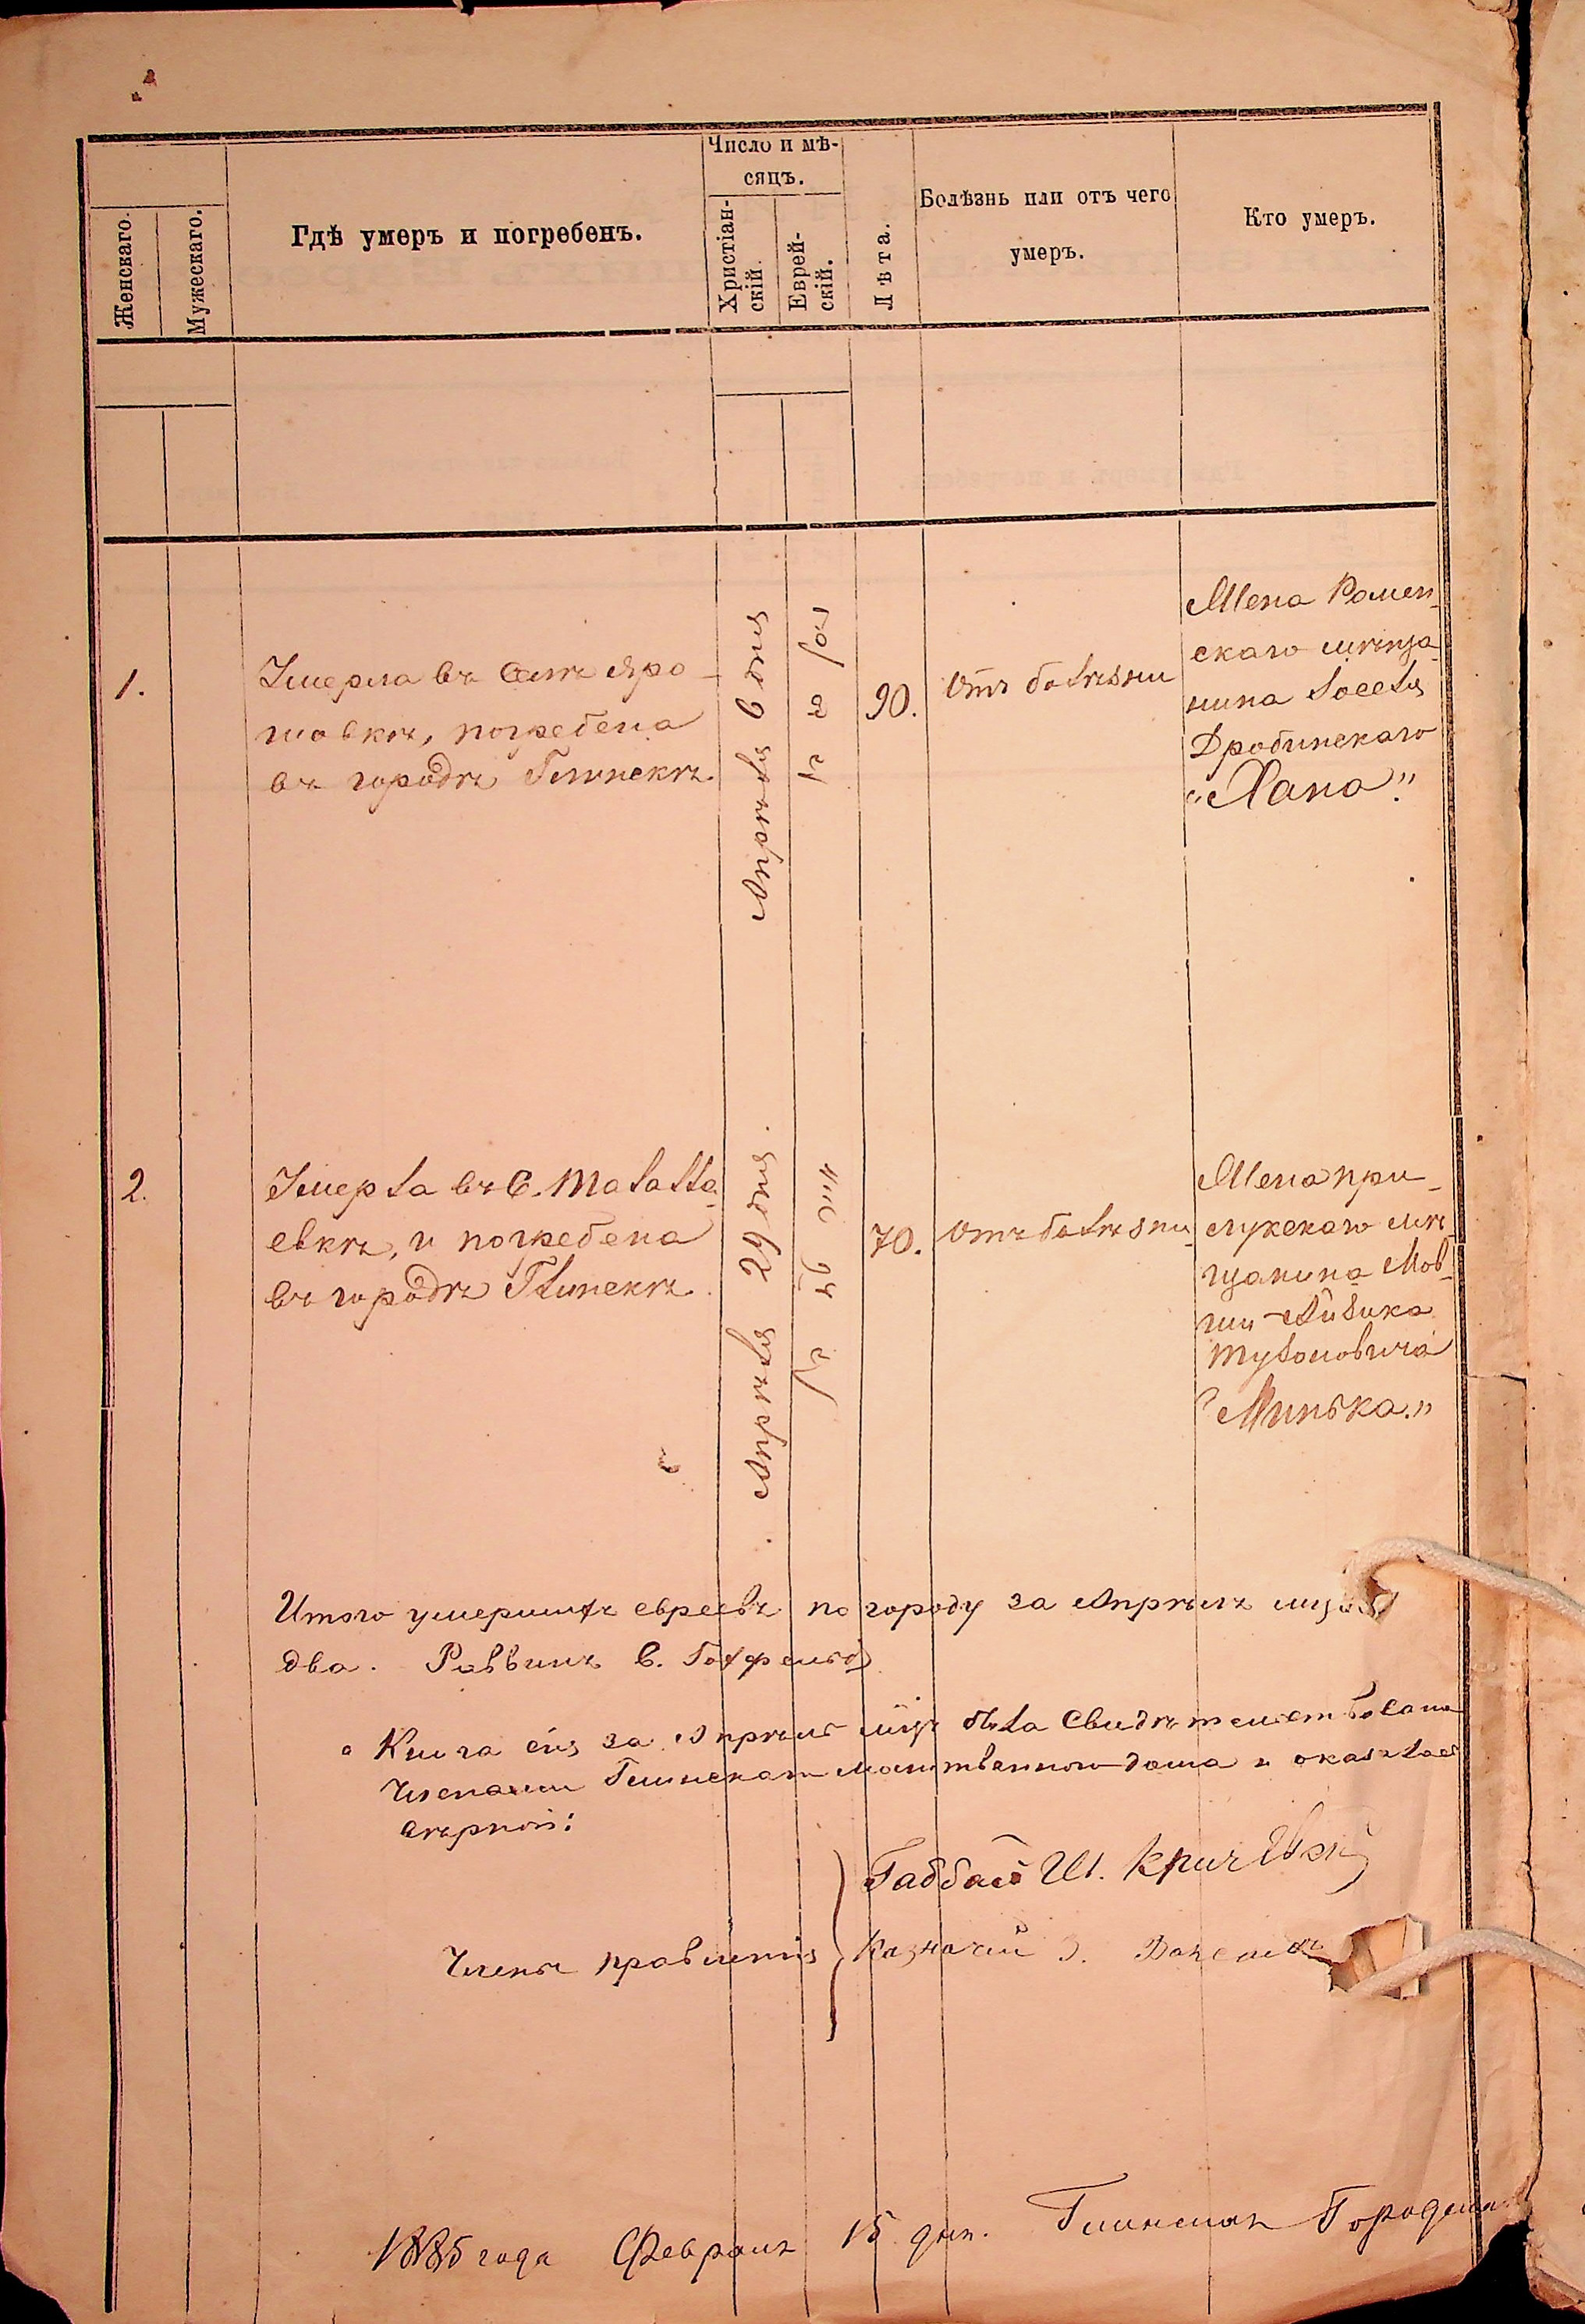 Женскаго.
Мужескаго.
Гдѣ умеръ и погребенъ.
Число и мѣ-
сяцъ.
Христіан-
скій.
Еврей-
скій.
Лѣта.
Болѣзнь или отъ чего
умеръ.
Кто умеръ.
1.
Умерла въ Селѣ Яро-
шовкѣ, погребена
въ городѣ Глинскѣ.
Апрѣля 6 дня
90.
Отъ болѣзни
Жена Ромен-
скаго мѣща-
нина Іоселя
Дробинскаго
„Хана"
2.
Умерла въ С. Талала-
евкѣ, и погребена
въ городѣ Глинскѣ.
Апрѣля 29 дня.
70.
Отъ болѣзни
Жена при-
лукскаго мѣ-
щанина Мов-
ши-Айзика
"Минька."
Итого умершихъ евреевъ по городу за Апрѣль
два. Раввинъ
Книга сія за Апрѣль мцъ была Свидѣтельствована
Членами Глинскаго молитвеннаго дома и оказалась
вѣрной:
Члены правленія
Габбай Ш.
Казначей
1885 года Февраля 15 дня.